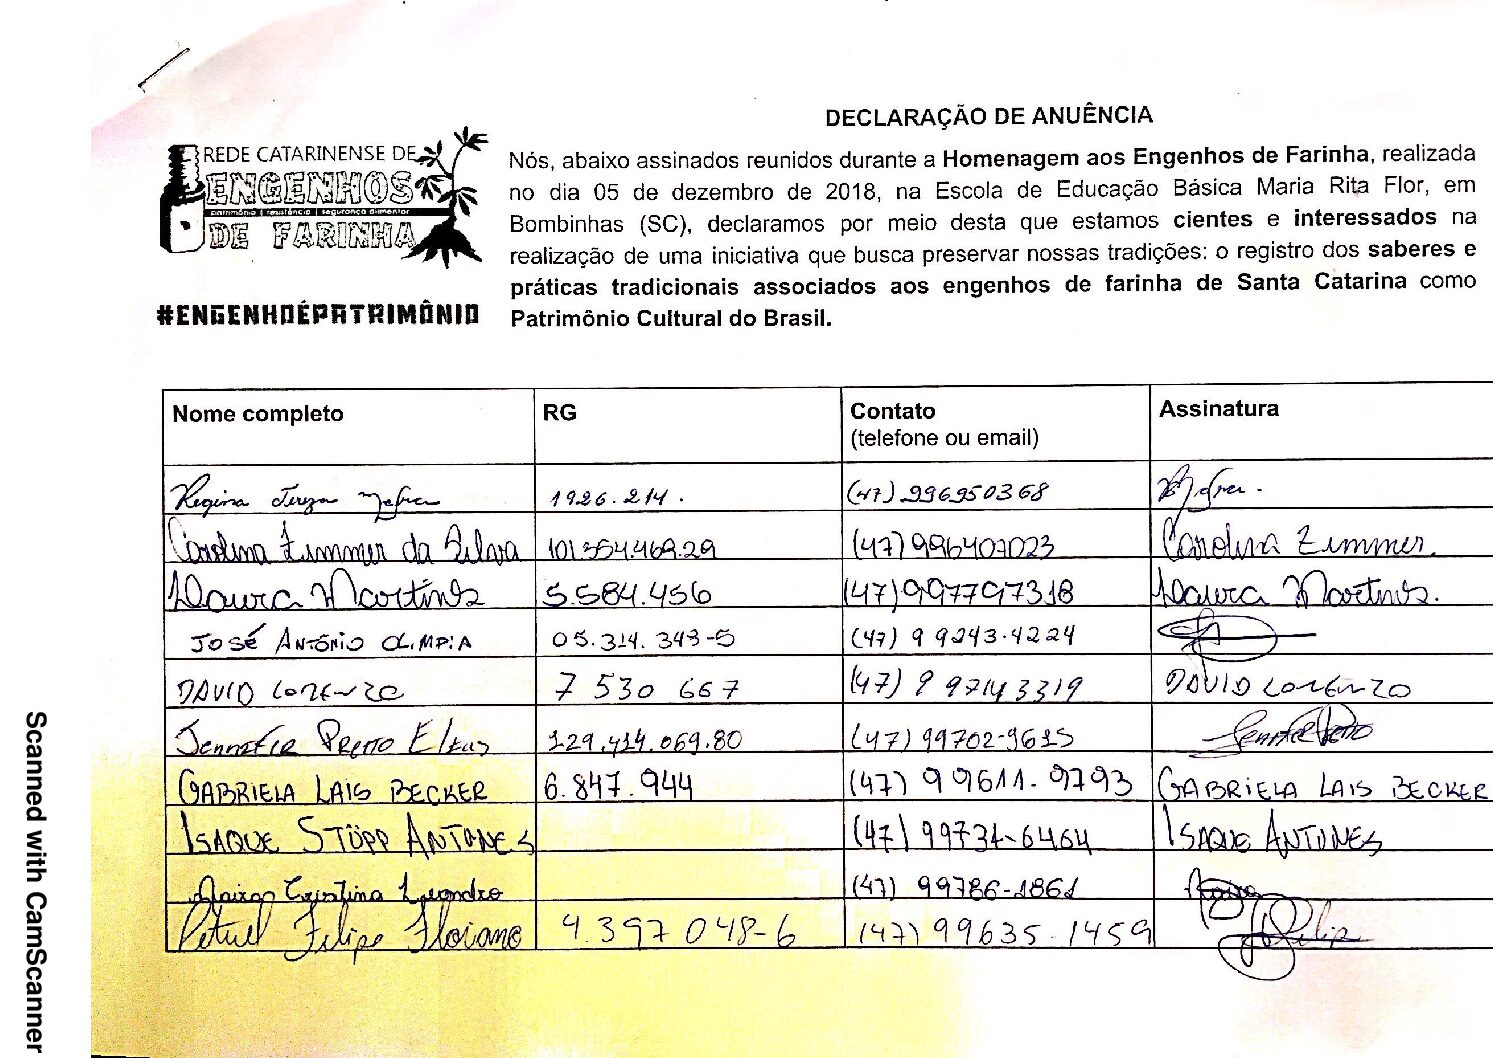 DECLARAÇÃO DE ANUÊNCIA
REDE CATARINENSE DE
ENGENHOS
patrimônio | resistência | segurança alimentar
DE FARINHA
#ENGENHOÉPATRIMÔNIO
Nós, abaixo assinados reunidos durante a Homenagem aos Engenhos de Farinha, realizada
no dia 05 de dezembro de 2018, na Escola de Educação Básica Maria Rita Flor, em
Bombinhas (SC), declaramos por meio desta que estamos cientes e interessados na
realização de uma iniciativa que busca preservar nossas tradições: o registro dos saberes e
práticas tradicionais associados aos engenhos de farinha de Santa Catarina como
Patrimônio Cultural do Brasil.
Nome completo RG Contato Assinatura
(telefone ou email)
Regina Tereza Mafra 1926.214. (47) 996950368 Mafra.
Carolina Zimmer da Silva 101.354.469.29 (47) 996407023 Carolina Zimmer.
Maura Martins 5.584.456 (47) 997797318 Maura Martins.
JOSÉ ANTÔNIO OLIMPIA 05.314.343-5 (47) 9 9243-4224
DAVID LORENZO 7 530 667 (47) 9 97143319 DAVID LORENZO
129.414.069.80 (47) 99702-9615
GABRIELA LAIS BECKER 6.847.944 (47) 99611-9793 GABRIELA LAIS BECKER
ISAQUE STÜPP ANTUNES (47) 99731-6464 ISAQUE ANTUNES
Cristina Leandro (47) 99786-1861
Petuel Filipe Floriano 4.397 048-6 (47) 99635-1459 Filipe
Scanned with CamScanner